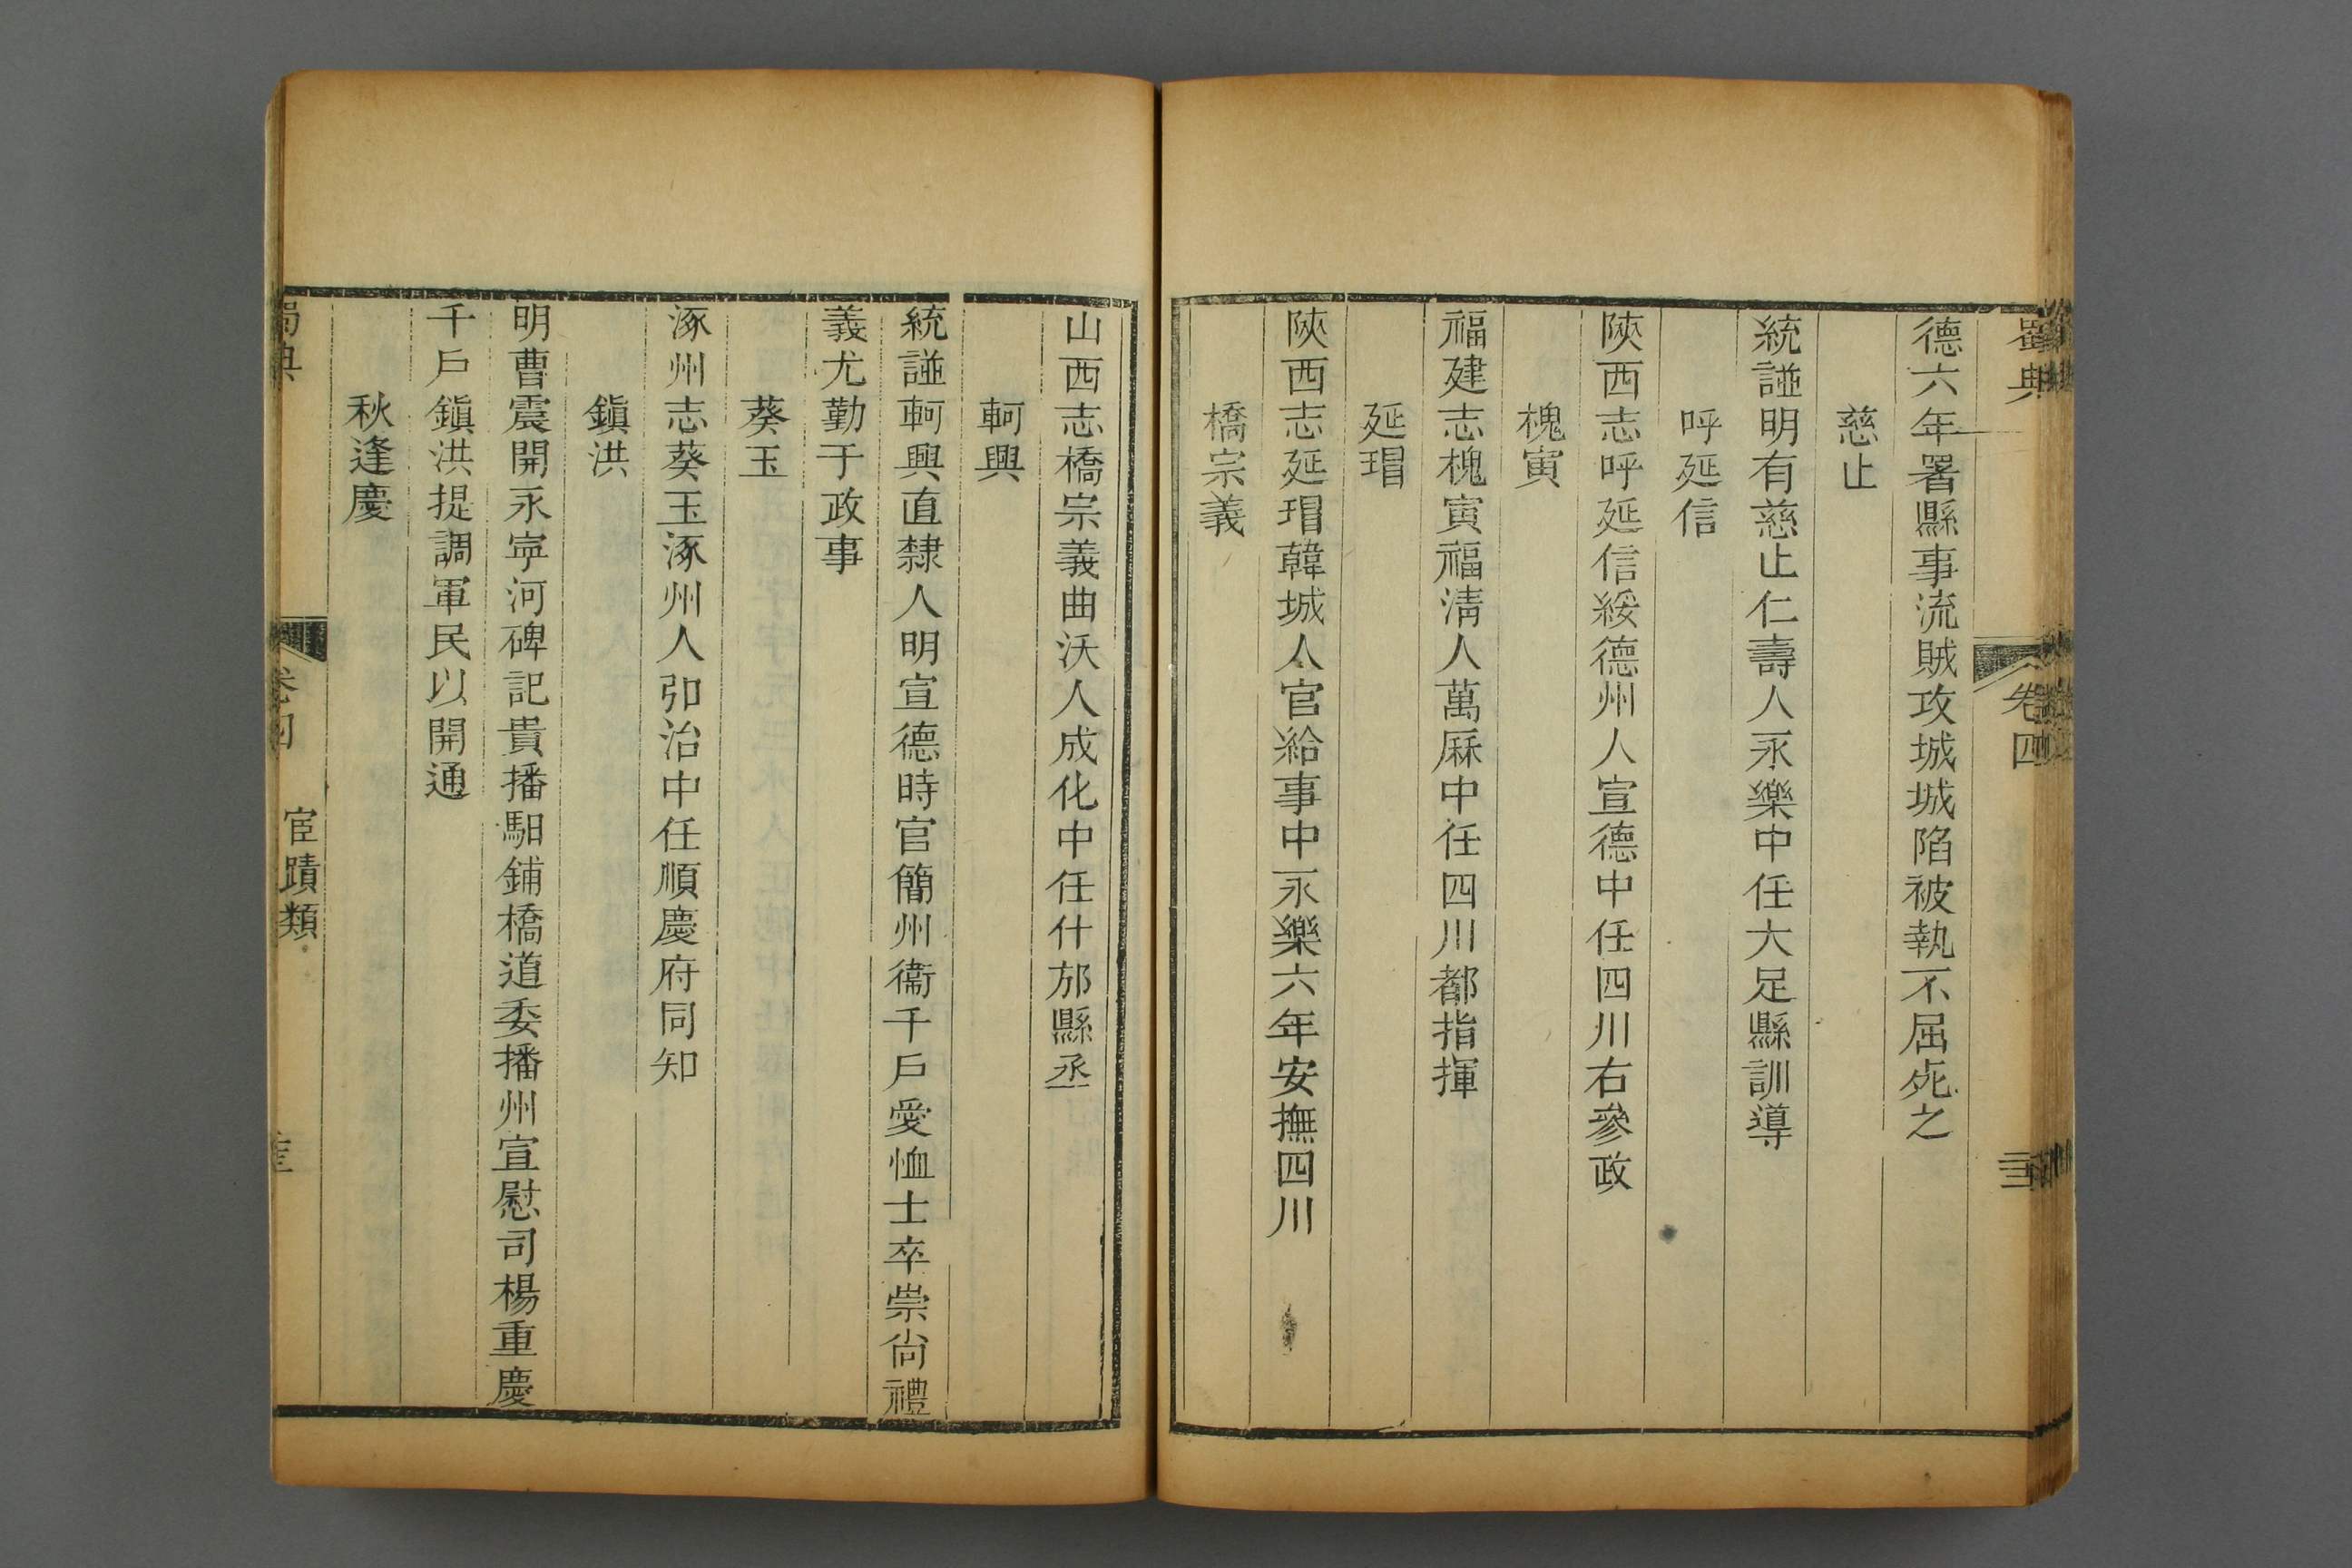 蜀典
卷四
德六年署縣事流賊攻城城陷被執不屈死之
慈止
統譜明有慈止仁壽人永樂中任大足縣訓導
呼延信
陝西志呼延信綏德州人宣德中任四川右參政
槐寅
福建志槐寅福淸人萬厤中任四川都指揮
延瑁
陝西志延瑁韓城人官給事中永樂六年安撫四川
橋宗義
山西志橋宗義曲沃人成化中任什邡縣丞
軻興
統譜軻興直隸人明宣德時官簡州衞千戶愛恤士卒崇尙禮
義尤勤于政事
葵玉
涿州志葵玉涿州人弘治中任順慶府同知
鎭洪
明曹震開永寧河碑記貴播馹鋪橋道委播州宣慰司楊重慶
千戶鎭洪提調軍民以開通
秋逢慶
蜀典
卷四
宦蹟類